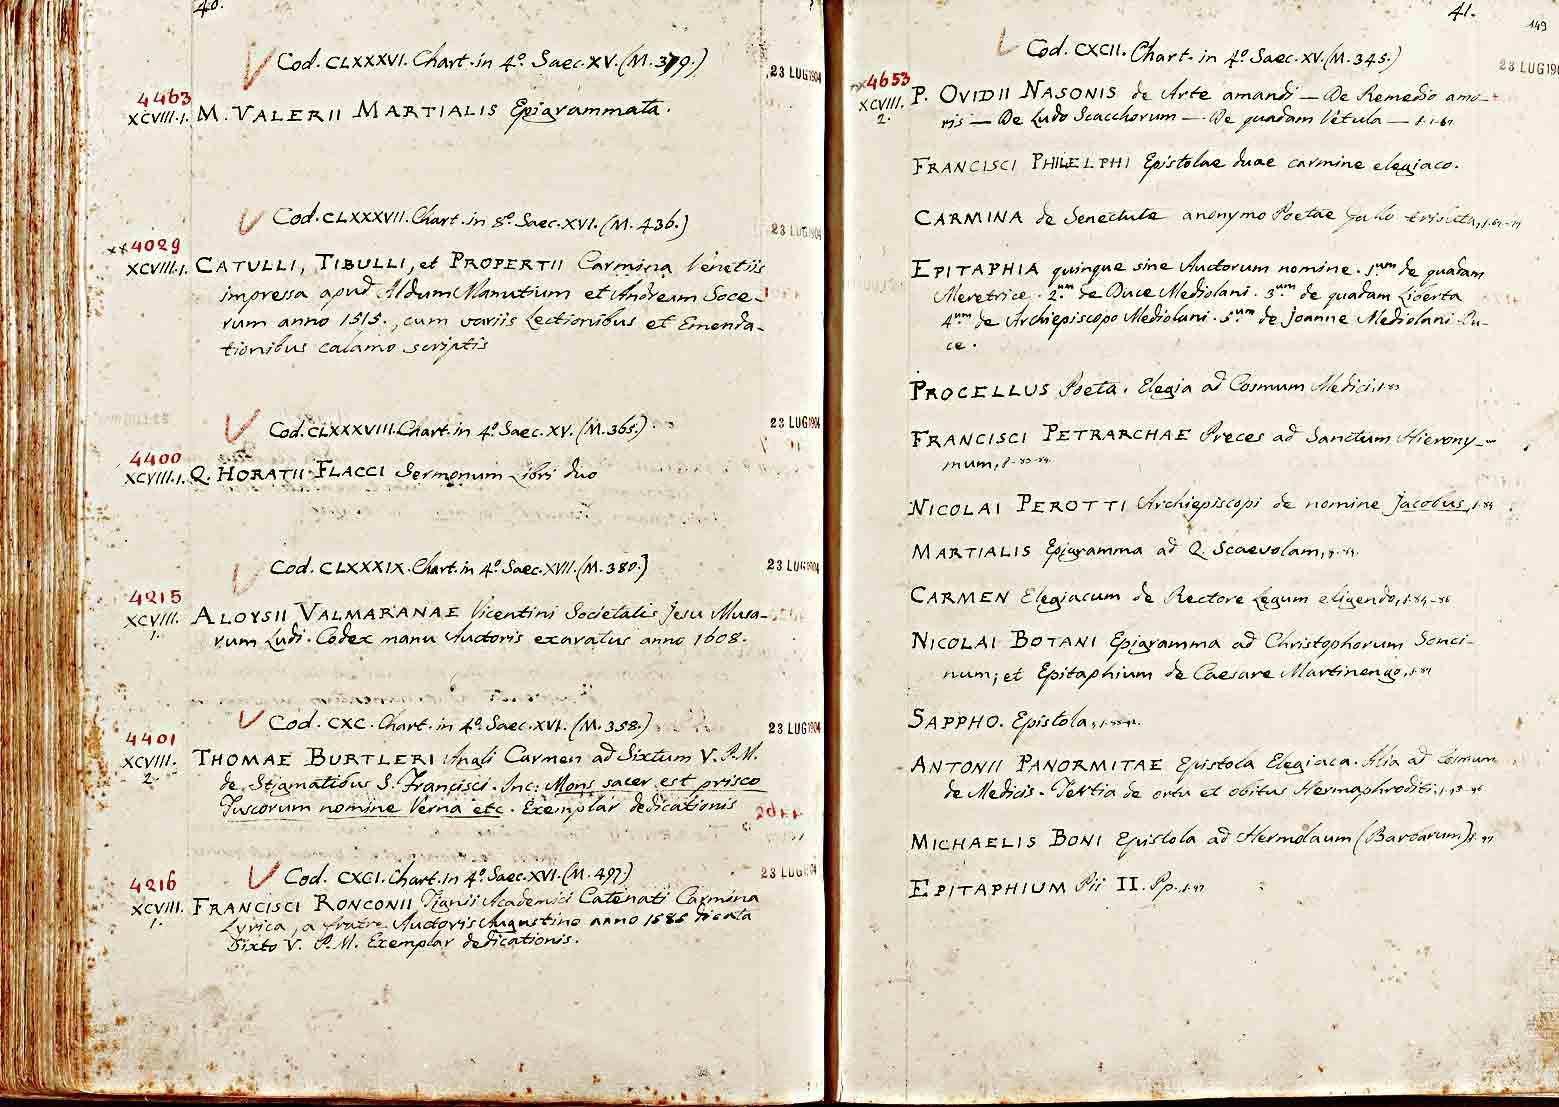 40.
Cod. CLXXXVI. Chart. in 4º. Saec. XV. (M. 379.)
23 LUG 1904
4463
XCVIII.1. M. VALERII MARTIALIS Epigrammata.
Cod. CLXXXVII. Chart. in 8º. Saec. XVI. (M. 436.)
23 LUG 1904
xx4029
XCVIII.1. CATULLI, TIBULLI, et PROPERTII Carmina Venetiis
impressa apud Aldum Manutium et Andream Soce-
rum anno 1515., cum variis Lectionibus et Emenda-
tionibus calamo scriptis
Cod. CLXXXVIII. Chart. in 4º. Saec. XV. (M. 365.)
23 LUG 1904
4400
XCVIII.1. Q. HORATII FLACCI Sermonum Libri duo
Cod. CLXXXIX. Chart. in 4º. Saec. XVII. (M. 380.)
23 LUG 1904
4215
XCVIII.1. ALOYSII VALMARANAE Vicentini Societatis Jesu Musa-
rum Ludi. Codex manu Auctoris exaratus anno 1608.
Cod. CXC. Chart. in 4º. Saec. XVI. (M. 358.)
23 LUG 1904
4401
XCVIII.2. THOMAE BURTLERI Angli Carmen ad Sixtum V. P.M.
de Stigmatibus S. Francisci. Inc: Mons sacer est prisco
Tuscorum nomine Verna etc. Exemplar dedicationis
Cod. CXCI. Chart. in 4º. Saec. XVI. (M. 497.)
23 LUG 1904
4216
XCVIII.1. FRANCISCI RONCONII Academici Catenati Carmina
Lyrica, a fratre Auctoris Augustino anno 1586 dicata
Sixto V. P.M. Exemplar dedicationis.
41.
149
Cod. CXCII. Chart. in 4º. Saec. XV. (M. 345.)
23 LUG 190
xx4653
XCVIII.2. P. OVIDII NASONIS de Arte amandi — De Remedio amo-
ris — De Ludo Scacchorum — De quadam Vetula —
FRANCISCI PHILELPHI Epistolae duae carmine elegiaco.
CARMINA de Senectute anonymo Poetae
EPITAPHIA quinque sine Auctorum nomine. 1.um de quadam
Meretrice. 2.um de Duce Mediolani. 3.um de quadam Liberta
4.um de Archiepiscopo Mediolani. 5.um de Joanne Mediolani Du-
ce.
PROCELLUS Poeta. Elegia ad Cosmum Medici,
FRANCISCI PETRARCHAE Preces ad Sanctum Hierony-
mum,
NICOLAI PEROTTI Archiepiscopi de nomine Jacobus,
MARTIALIS Epigramma ad Q. Scaevolam,
CARMEN Elegiacum de Rectore Legum eligendo,
NICOLAI BOTANI Epigramma ad Christophorum Sonci-
num; et Epitaphium de Caesare Martinengo,
SAPPHO. Epistola,
ANTONII PANORMITAE Epistola Elegiaca. Alia ad Cosmum
de Medicis. Tertia de ortu et obitus Hermaphroditi,
MICHAELIS BONI Epistola ad Hermolaum (Barbarum)
EPITAPHIUM Pii II. Pp.